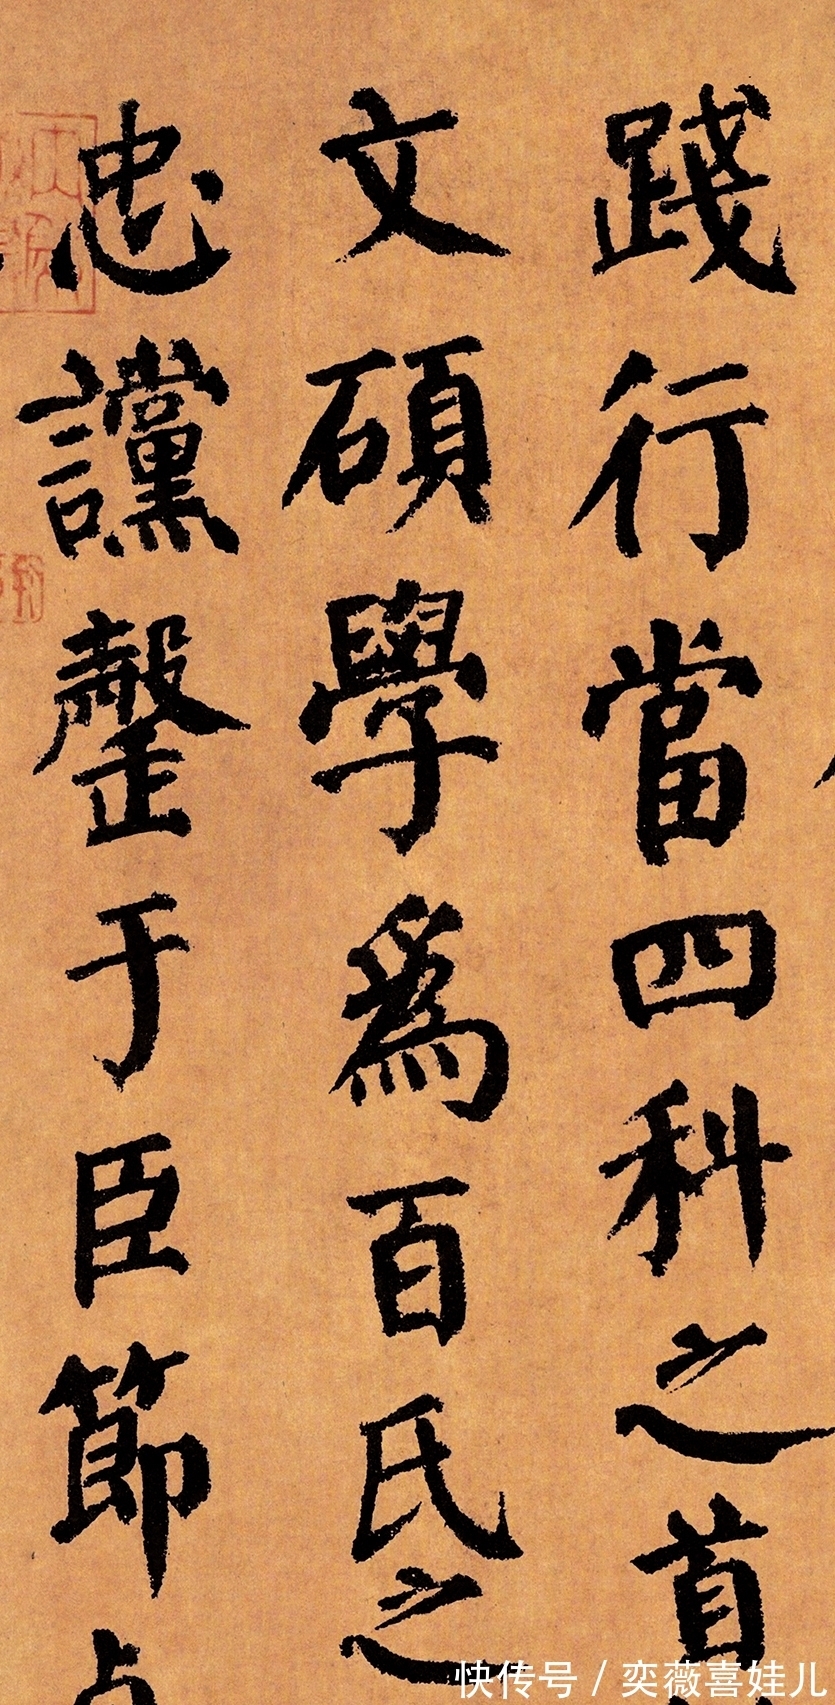 踐行當四科之首
文碩學爲百氏之
忠讜罄于臣節
快传号 / 奕薇喜娃儿